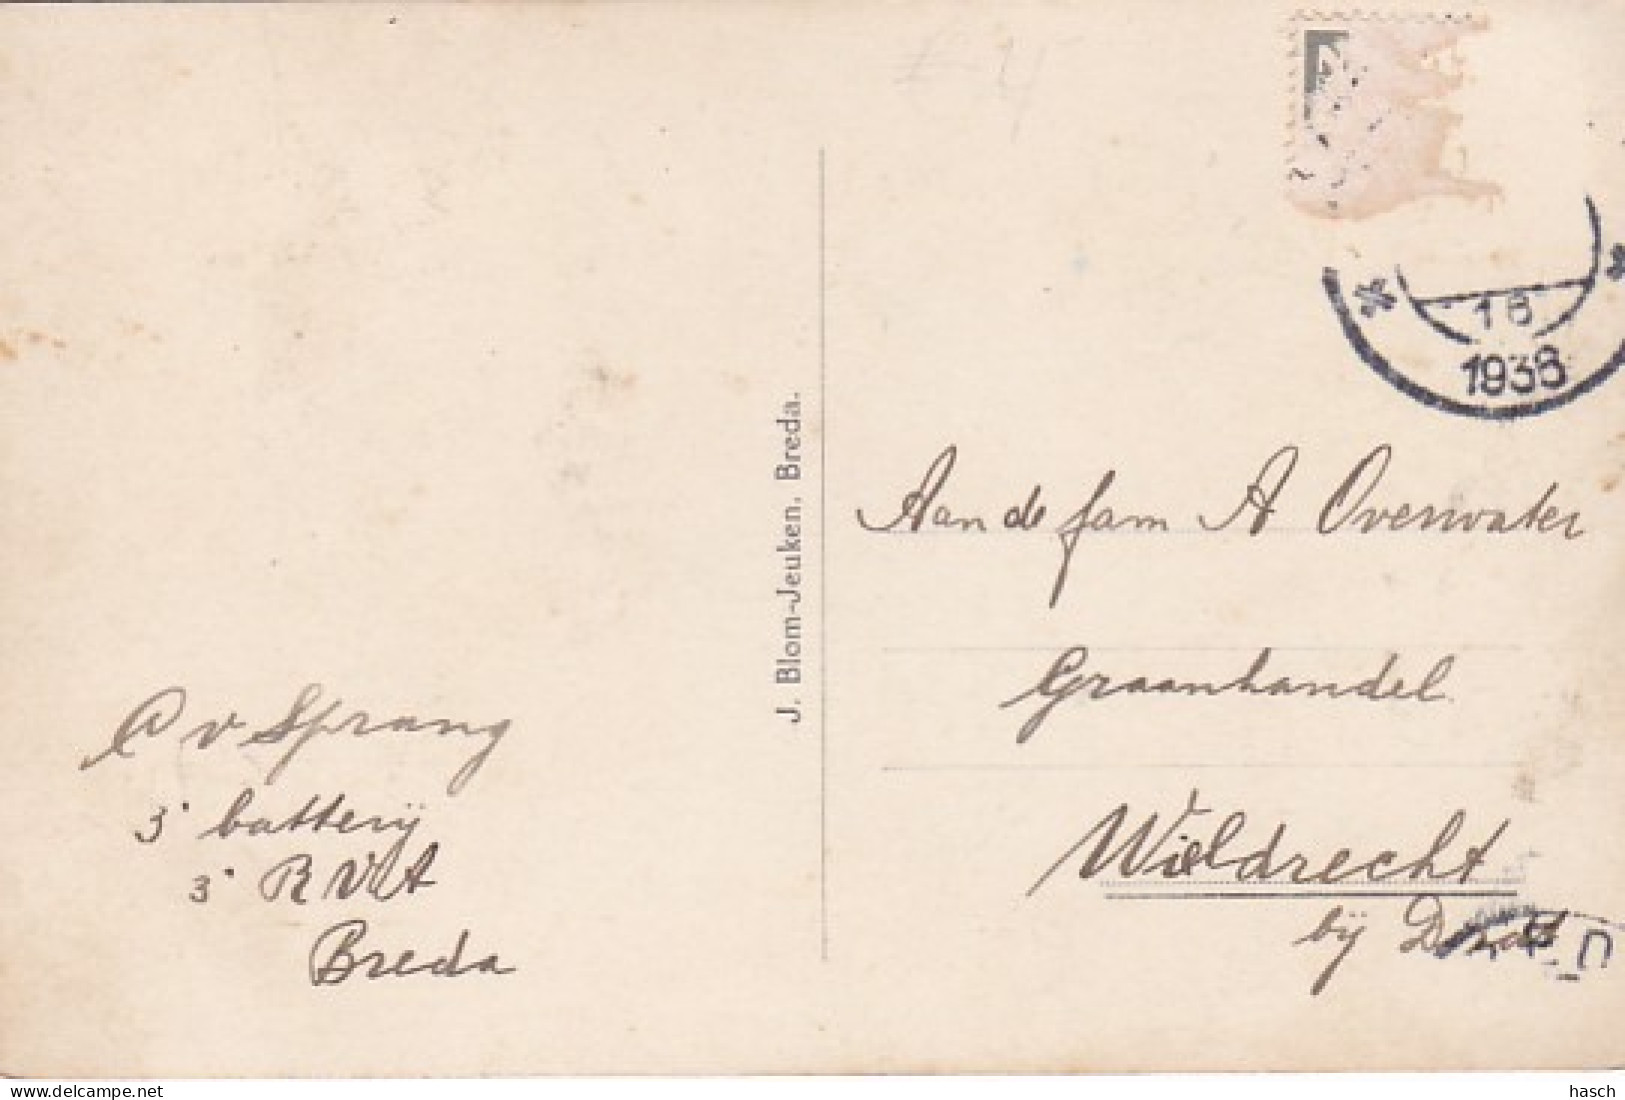 16
1938
J. Blom-Jeuken, Breda.
Aan de fam A Overwater
Graanhandel
Wieldrecht
bij Dordt
C v Sprang
3e batterij
3e R V A
Breda
delcampe.net
hasch